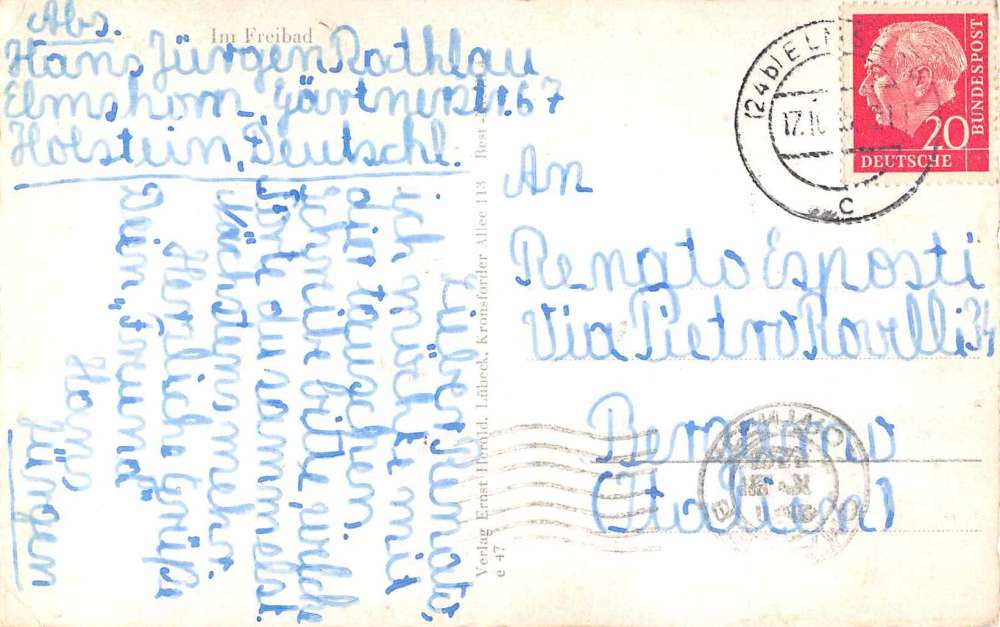 Abs.
Im Freibad
Hans Jürgen Rathlau
Elmshorn, Gärtnerstr. 67
Holstein, Deutschl.
Lieber Renato,
ich möchte mit
dir tauschen.
Schreibe bitte, welche
Sorte du sammelst.
Nächstens mehr.
Herzliche Grüße
Dein „Freund"
Hans
Jürgen
Verlag Ernst Herold, Lübeck, Kronsforder Allee 113
e 47
Best.
(24b) ELMS
17.10.
c
20
DEUTSCHE
BUNDESPOST
An
Renato Esposti
Via Pietro Rovelli 34
Bergamo
(Italien)